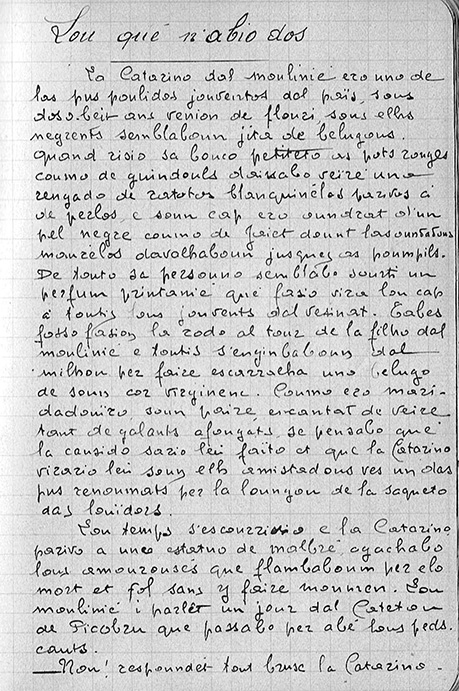 Lou qué n'abio dos
La Catarino dal moulinié ero uno de
las pus poulidos jouventos dal païs, sous
dos-o-beit ans venion de flouri, sous ells
negrents semblaboun jità de belugous.
Quand risio sa bouco petiteto as pots rouges
coumo de guindouls daissabo veire uno
rengado de ratotos blanquinélos parivos à
de perlos e soun cap ero oundrat d'un
pel negre coumo de jaiet dount las ountados
mourélos davalhaboun jusques as poumpils.
De touto sa persouno semblabo sourti un
perfum printanié qué fasio vira lou cap
à toutis lous jouvents dal vesinat. Eabes
fosso fasion la rodo al tour de la filho dal
moulinié e toutis s'enginbaboun dal
milhou per faire escarracha uno belugo
de soun cor virginenc. Coumo ero mari-
dadouiro soun paire encantat de veire
tant de galants afougats, se pensabo qué
la causido sario lèu faito et que la Catarino
virario lèu soun ell amistadous ves un das
pus renoumats per la loungou de la saqueto
das louidors.
Lou temps s'escourrissio e la Catarino
parivo a uno estatuo de malbre, agachabo
lous amourouses que flambaboun per elo
mort et fol sans y faire mounren. Lou
moulinié i parlèt un jour dal Cadetou
de Picobru que passabo per abé lous peds-
cauts.
— Non! respoundèt tout brusc la Catarino -